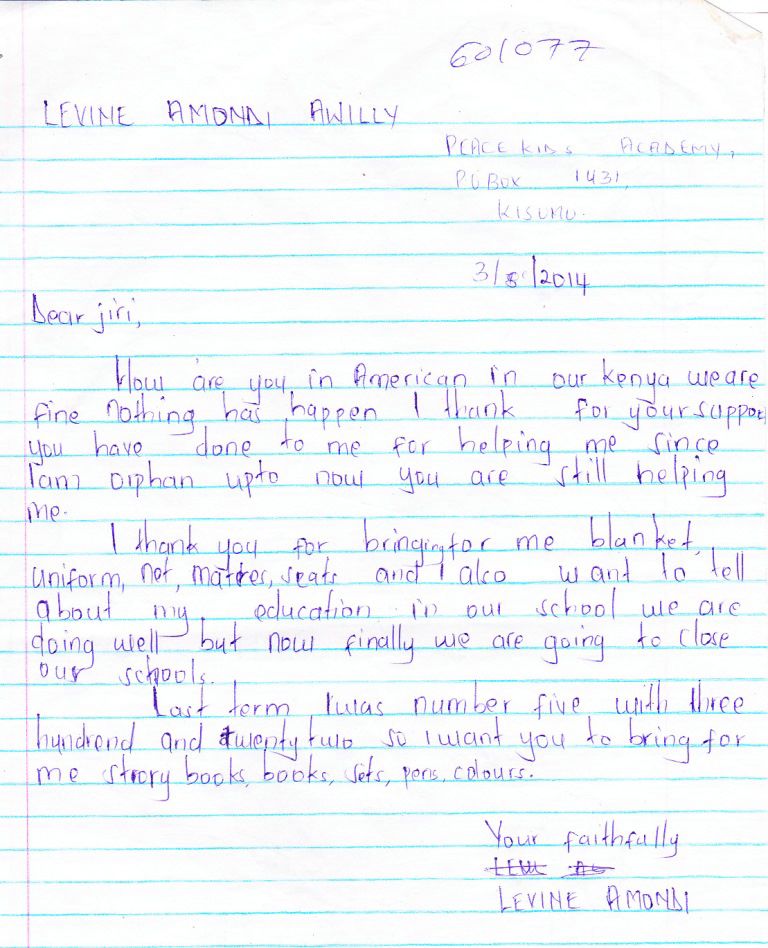 601077
LEVINE AMONDI AWILLY
PEACE KIDS ACADEMY,
P.O BOX 1431,
KISUMU.
3/8/2014
Dear jiri,
How are you in American in our kenya we are
fine nothing has happen I thank for your suppot
you have done to me for helping me since
Iam orphan upto now you are still helping
me.
I thank you for bringing for me blanket,
uniform, net, mattres, seats and I also want to tell
about my education in our school we are
doing well but now finally we are going to close
our schools.
Last term Iwas number five with three
hundrend and twenty two so i want you to bring for
me strory books, books, sets, pens, colours.
Your faithfully
LEVINE AMONDI